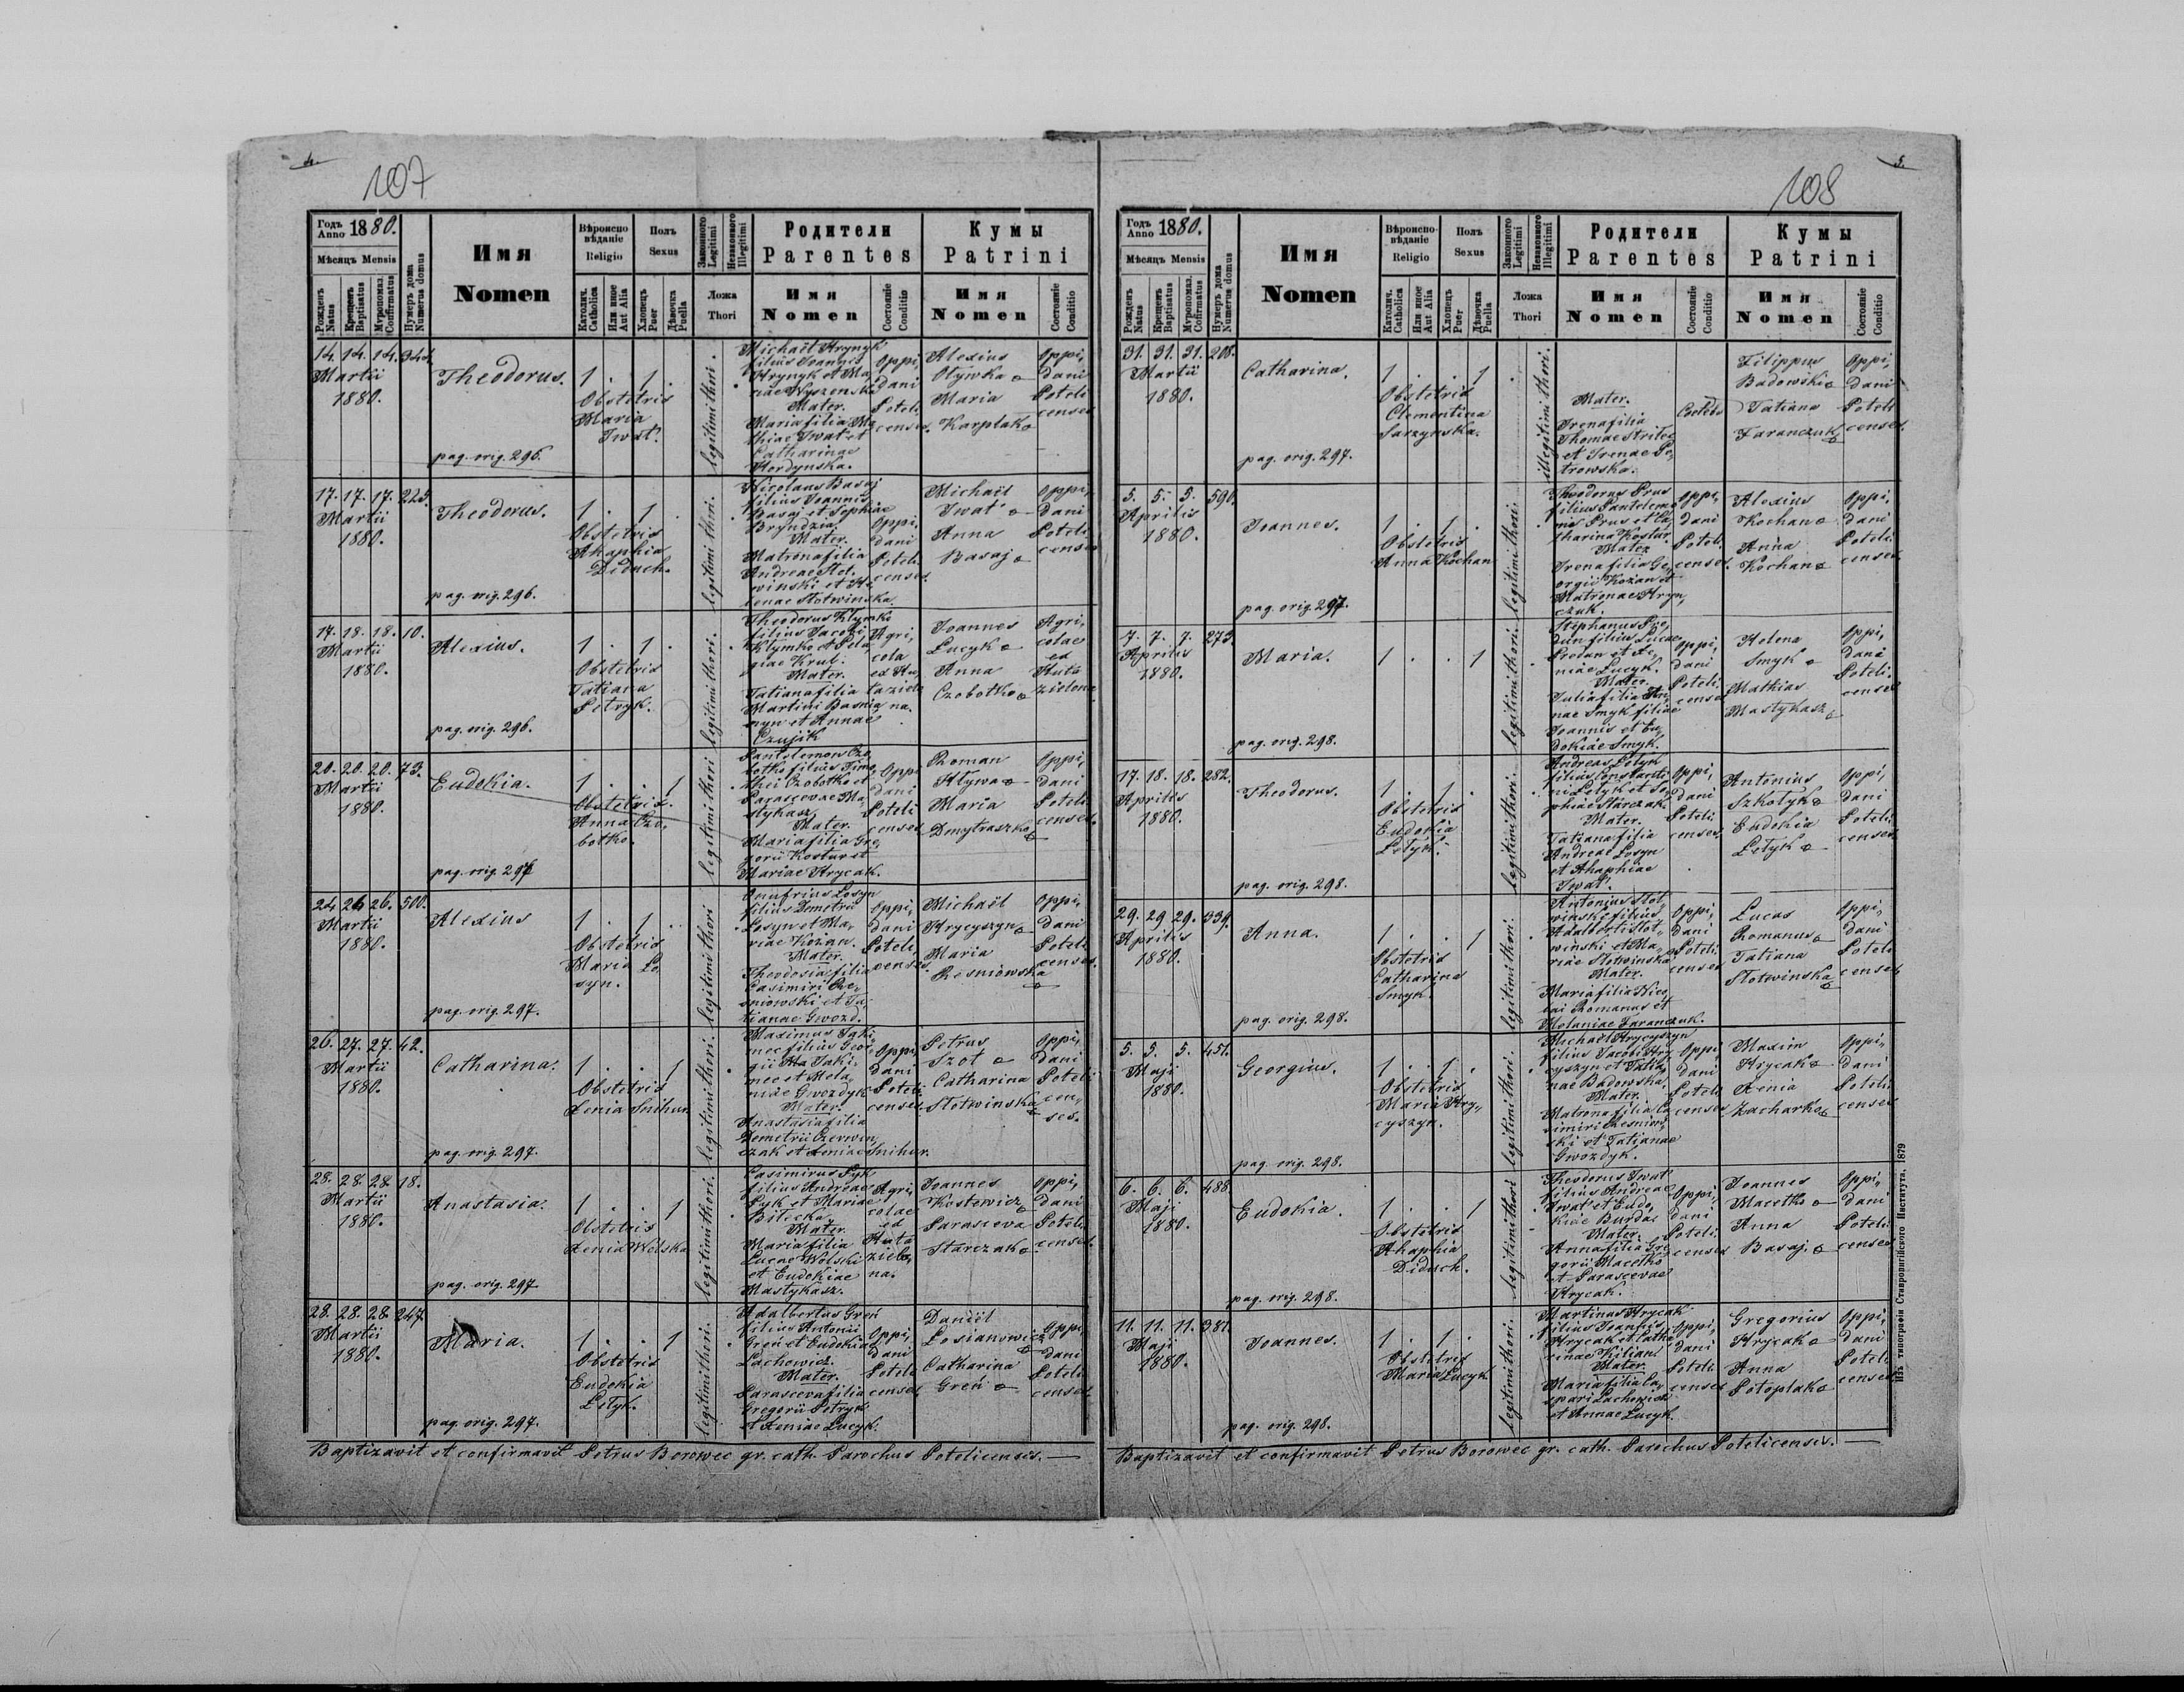 4.
107
Годъ Anno 1880.
Мѣсяцъ Mensis
Рожденъ Natus
Крещенъ Baptisatus
Муропомаз. Confirmatus
Нумеръ дома Numerus domus
Имя
Nomen
Вѣроиспо
вѣданіе
Religio
Католич. Catholica
Или иное Aut Alia
Полъ
Sexus
Хлопецъ Puer
Дѣвочка Puella
Законного Legitimi
Незаконного Illegitimi
Ложа
Thori
Родители
Parentes
Имя
Nomen
Состояніе Conditio
Кумы
Patrini
Имя
Nomen
Состояніе Conditio
14. 14. 14. 344.
Martii
1880.
Theodorus.
pag. orig. 296.
1 . 1 .
Obstetrix
Maria
Iwat'.
legitimi thori.
Michaël Hrynyk
filius Joannis
Hrynyk et Ma,
riae Wyszenska
Mater.
Maria filia Ma
thiae Iwat' et
Catharinae
Hordynska.
Oppi,
dani
Poteli
censes.
Alexius
Olywka
Maria
Karplak
Oppi,
dani
Poteli
censes
17. 17. 17. 225.
Martii
1880.
Theodorus.
pag. orig. 296.
1 . 1 .
Obstetrix
Ahaphia
Diduch.
legitimi thori.
Nicolaus Basaj
filius Joannis
Basaj et Sophiae
Bryndzia.
Mater.
Matrona filia
Andreae Slot.
winski et He
lenae Slotwinska
Oppi,
dani
Poteli
censes
Michaël
Iwat'
Anna
Basaj
Oppi,
dani
Poteli
censes
17. 18. 18. 10.
Martii
1880.
Alexius.
pag. orig. 296.
1 . 1 .
Obstetrix
Tatiana
Petryk.
legitimi thori.
Theodorus Klymko
filius Jacobi
Klymko et Pela,
giae Krul.
Mater.
Tatiana filia
Martini Basnia
nyn et Annae
Czujak
Agri,
cola
ex Hu,
ta ziele
na.
Joannes
Lucyk
Anna
Czobotko
Agri,
colae
ex
Huta
zielona
20. 20. 20. 73.
Martii
1880.
Eudokia.
pag. orig. 297
1 . . 1
Obstetrix.
Anna Czo,
botko.
legitimi thori
Pantelemon Czo
botko filius Timo,
thei Czobotko et
Parascevae Ma
stykasz
Mater.
Maria filia Gre,
gorii Kostur et
Mariae Hrycak.
Oppi
dani
Poteli
censes
Roman
Hlywa
Maria
Dmytraszko
Oppi,
dani
Poteli
censes.
24. 26 26. 500.
Martii
1880.
Alexius
pag. orig. 297.
1 . 1 .
Obstetrix
Maria Lo
syn.
legitimi thori
Onufrius Losyn
filius Demetrii
Losyn et Ma,
riae Kozan.
Mater.
Theodosia filia
Casimiri Re,
sniowski et Ta,
tianae Gwozd.
Oppi,
dani
Poteli,
censes.
Michaël
Hrycyszyn
Maria
Resniowska
Oppi,
dani
Poteli
censes.
26. 27. 27. 42.
Martii
1880.
Catharina.
pag. orig. 297.
1 . . 1
Obstetrix
Xenia Snihur.
legitimi thori.
Maximus Jaki
mec filius Geor,
gii Jaki,
mec et Mela,
niae Gwozdyk
Mater.
Anastasia filia
Demetrii Czerwon,
czak et Xeniae Snihur.
Oppi,
dani
Poteli
censes
Petrus
Szot
Catharina
Slotwinska
Oppi,
dani
Poteli
cen,
ses.
28. 28. 28. 18.
Martii
1880.
Anastasia.
pag. orig. 297
1 . . 1
Obstetrix
Xenia Wolska
legitimi thori.
Casimirus Pyk
filius Andreae
Pyk et Mariae
Bilecka.
Mater.
Maria filia
Lucae Wolski
et Eudokiae
Mastykasz.
Agri,
colae
ex
Huta
ziele,
na.
Joannes
Kostewicz
Parasceva
Starczak
Oppi,
dani
Poteli
censes.
28. 28. 28. 247.
Martii
1880.
Maria.
pag. orig. 297.
1 . . 1
Obstetrix
Eudokia
Letyk.
legitimi thori.
Adalbertus Greń
filius Antonii
Greń et Eudokiae
Lachowicz.
Mater.
Parasceva filia
Gregorii Petryk
et Xeniae Lucyk.
Oppi,
dani
Poteli
censes
Daniël
Losianowicz
Catharina
Greń
Oppi,
dani
Poteli
censes
Baptizavit et confirmavit Petrus Borowec gr. cath. Parochus Potelicensis.
5.
108
Годъ Anno 1880.
Мѣсяцъ Mensis
Рожденъ Natus
Крещенъ Baptisatus
Муропомаз. Confirmatus
Нумеръ дома Numerus domus
Имя
Nomen
Вѣроиспо-
вѣданіе
Religio
Католич. Catholica
Или иное Aut Alia
Полъ
Sexus
Хлопецъ Puer
Дѣвочка Puella
Законного Legitimi
Незаконного Illegitimi
Ложа
Thori
Родители
Parentes
Имя
Nomen
Состояніе Conditio
Кумы
Patrini
Имя
Nomen
Состояніе Conditio
31. 31. 31. 208.
Martii
1880.
Catharina.
pag. orig. 297.
1 . . 1
Obstetrix
Clementina
Sarzynska.
illegitimi thori.
Mater.
Irena filia
Thomae Strilec
et Irenae Pe,
trowska.
Filippus
Badowski
Tatiana
Taranczuk
Oppi,
dani
Poteli
censes.
5. 5. 5. 590.
Aprilis
1880.
Joannes.
pag. orig. 297.
1 . 1 .
Obstetrix
Anna Kochan
legitimi thori.
Theodorus Prus
filius Pantelemo
nis Prus et Ca,
tharina Kostur.
Mater
Irena filia Ge,
orgii Kozan et
Matronae Hryn,
czuk.
Oppi,
dani
Poteli.
censes.
Alexius
Kochan
Anna
Kochan
Oppi,
dani
Poteli
censes.
7. 7. 7. 273.
Aprilis
1880.
Maria.
pag. orig. 298.
1 . . 1
legitimi thori.
Stephanus Pre,
dun filius Lucae
Predun et Xe,
niae Lucyk.
Mater.
Julia filia An,
nae Smyk filiae
Joannis et Eu,
dokiae Smyk.
Oppi,
dani
Poteli
censes
Helena
Smyk
Mathias
Mastykasz
Oppi,
dani
Poteli.
censes
17. 18. 18. 282.
Aprilis
1880.
Theodorus.
pag. orig. 298.
1 . 1 .
Obstetrix
Eudokia
Letyk.
legitimi thori.
Andreas Letyk
filius Constanti
ni Letyk et So,
phiae Starczak.
Mater.
Tatiana filia
Andreae Losyn
et Ahaphiae
Iwat'.
Oppi,
dani
Poteli
censes.
Antonius
Szkolyk
Eudokia
Letyk
Oppi,
dani
Poteli
censes.
29. 29 29. 339.
Aprilis
1880.
Anna.
pag. orig. 298.
1 . . 1
Obstetrix
Catharina
Smyk.
legitimi thori.
Antonius Slot,
winski filius
Adalberti Slot,
winski et Ma,
riae Slotwinska
Mater.
Maria filia Nico
lai Romanus et
Melaniae Taranczuk.
Oppi,
dani
Poteli,
censes
Lucas
Romanus
Tatiana
Slotwinska
Oppi,
dani
Poteli
censes.
5. 5. 5. 451.
Maji
1880.
Georgius.
pag. orig. 298.
1 . 1 .
Obstetrix
Maria Hry,
cyszyn.
legitimi thori.
Michaël Hrycyszyn
filius Jacobi Hry
cyszyn et Tatia,
nae Badowska.
Mater.
Matrona filia Ca
simiri Resniow
ski et Tatianae
Gwozdyk.
Oppi,
dani
Poteli
censes
Maxim
Hrycak
Xenia
Zacharko
Oppi,
dani
Poteli
censes
6. 6. 6. 488.
Maji
1880.
Eudokia.
pag. orig. 298.
1 . . 1
Obstetrix
Ahaphia
Diduch.
legitimi thori
Theodorus Iwat'
filius Andreae
Iwat' et Eudo,
kiae Burda
Mater.
Anna filia Gre
gorii Macetko
et Parascevae
Hrycak.
Oppi,
dani
Poteli,
censes
Joannes
Macetko
Anna
Basaj.
Oppi,
dani
Poteli
censes
11. 11. 11. 381.
Maji
1880.
Joannes.
pag. orig. 298.
1 . 1 .
Obstetrix
Maria Lucyk
legitimi thori.
Martinus Hrycak
filius Joannis
Hrycak et Catha
rinae Kilian.
Mater.
Maria filia Ca,
spari Lachowicz
et Annae Lucyk.
Oppi,
dani
Poteli.
censes
Gregorius
Hrycak
Anna
Potoplak
Oppi,
dani
Poteli
censes
Baptizavit et confirmavit Petrus Borowec gr. cath. Parochus Potelicensis.
Изъ типографіи Ставропигійского Института. 1879